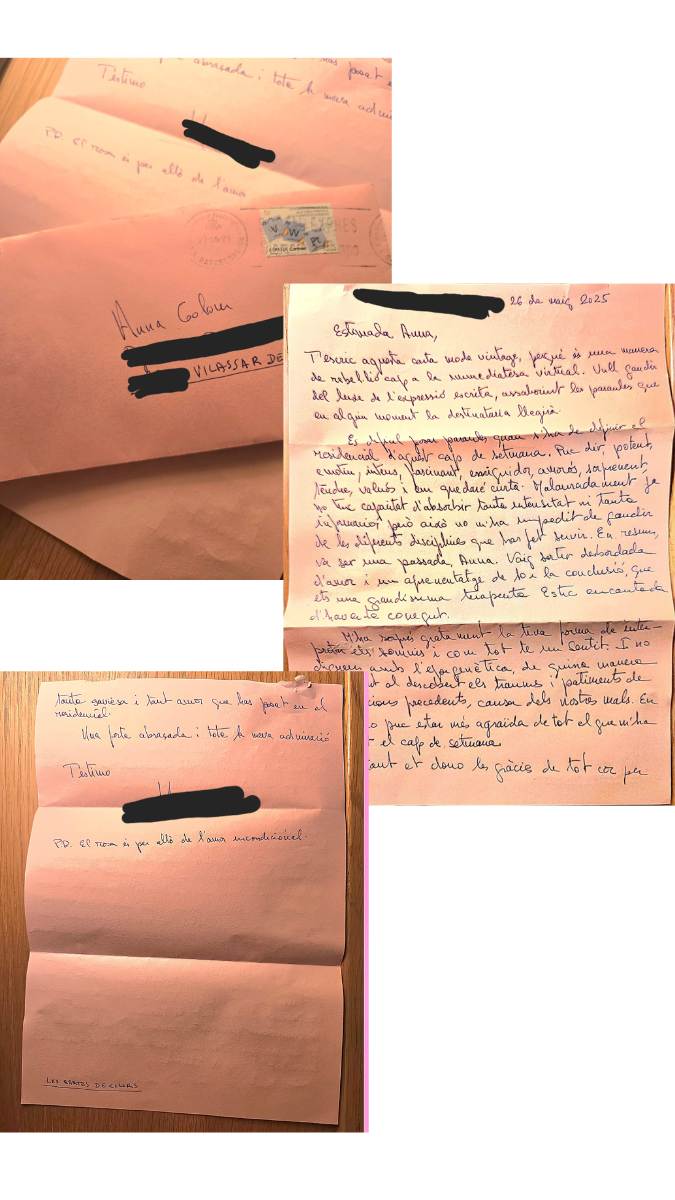 abraçada i tota la meva admi
T'estimo
P.D. El rosa és per allò de l'amor
Anna Colom
VILASSAR DE
26 de maig 2025
Estimada Anna,
T'escric aquesta carta mode vintage, perquè és una manera
de rebel·lió cap a la immediatesa virtual. Vull gaudir
del luxe de l'expressió escrita, assaborint les paraules que
en algun moment la destinatària llegirà.
Es difícil posar paraules quan s'ha de definir el
residencial d'aquest cap de setmana. Puc dir, potent,
emotiu, intens, fascinant, enriquidor, amorós, sorprenent,
tendre, valuós i em quedaré curta. Malauradament ja
no tinc capacitat d'absorbir tanta intensitat ni tanta
informació, però això no m'ha impedit de gaudir
de les diferents disciplines que has fet servir. En resum,
va ser una passada, Anna. Vaig sortir desbordada
d'amor i un aprenentatge de lo i la conclusió, que
ets una grandíssima terapeuta. Estic encantada
d'haver-te conegut.
M'ha sorprès gratament la teva forma de inter-
pretar els somnis i com tot té un sentit. I no
diguem amb l'epigenètica, de quina manera
al descobert els traumes i patiments de
precedents, causa dels nostres mals. En
puc estar més agraïda de tot el que m'ha
el cap de setmana.
et dono les gràcies de tot cor per
tanta saviesa i tant amor que has posat en el
residencial.
Una forta abraçada i tota la meva admiració
T'estimo
P.D. El rosa és per allò de l'amor incondicional.
LES CARTES DE COLORS